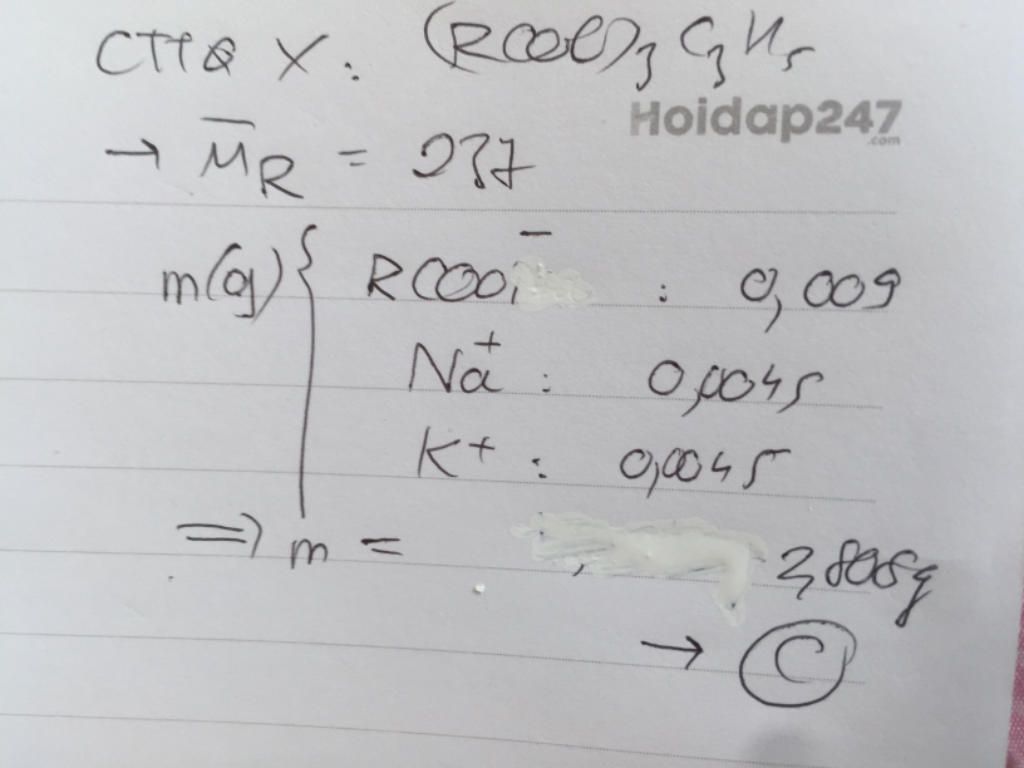 CTTQ X: (RCOO)₃C₃H₅
Hoidap247
.com
→ M̄R = 237
m(g) { RCOO⁻ : 0,009
Na⁺ : 0,0045
K⁺ : 0,0045
=> m = 2,808g
→ C